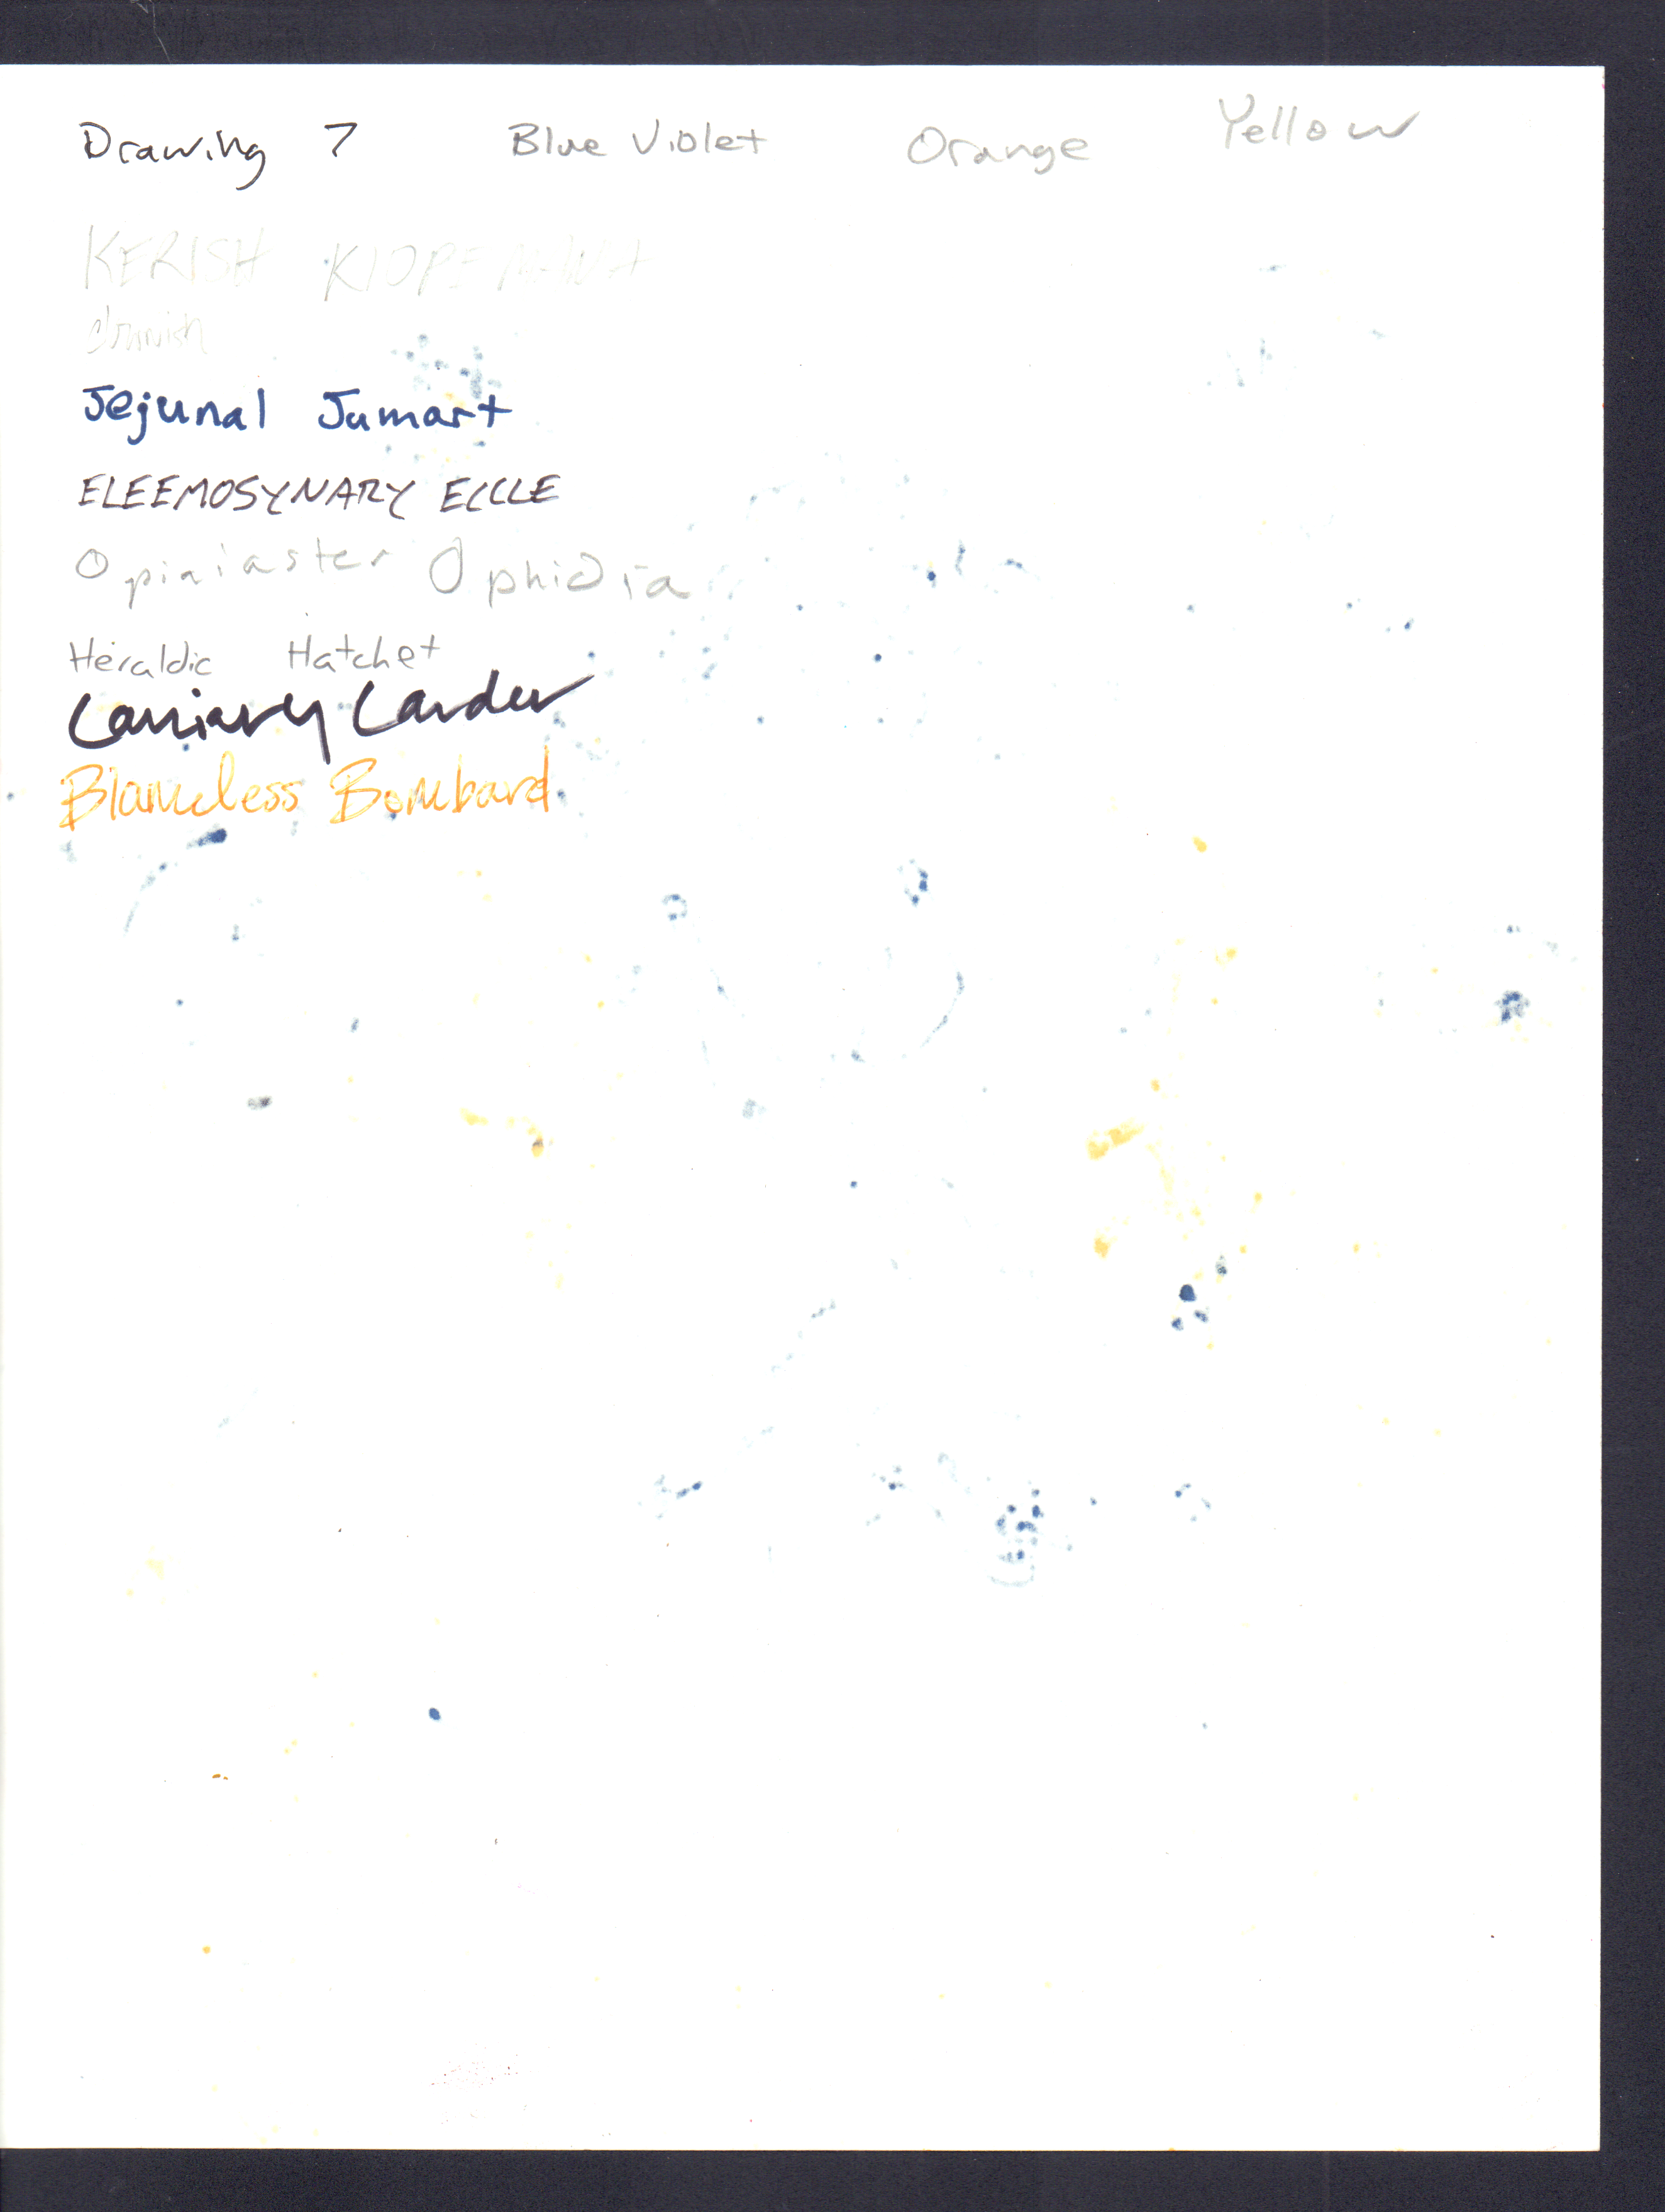 Drawing 7 Blue Violet Orange Yellow
KERISH
Jejunal Jumart
ELEEMOSYNARY ECCLE
Opiniaster Ophidia
Heraldic Hatchet
Larder
Blameless Bombard